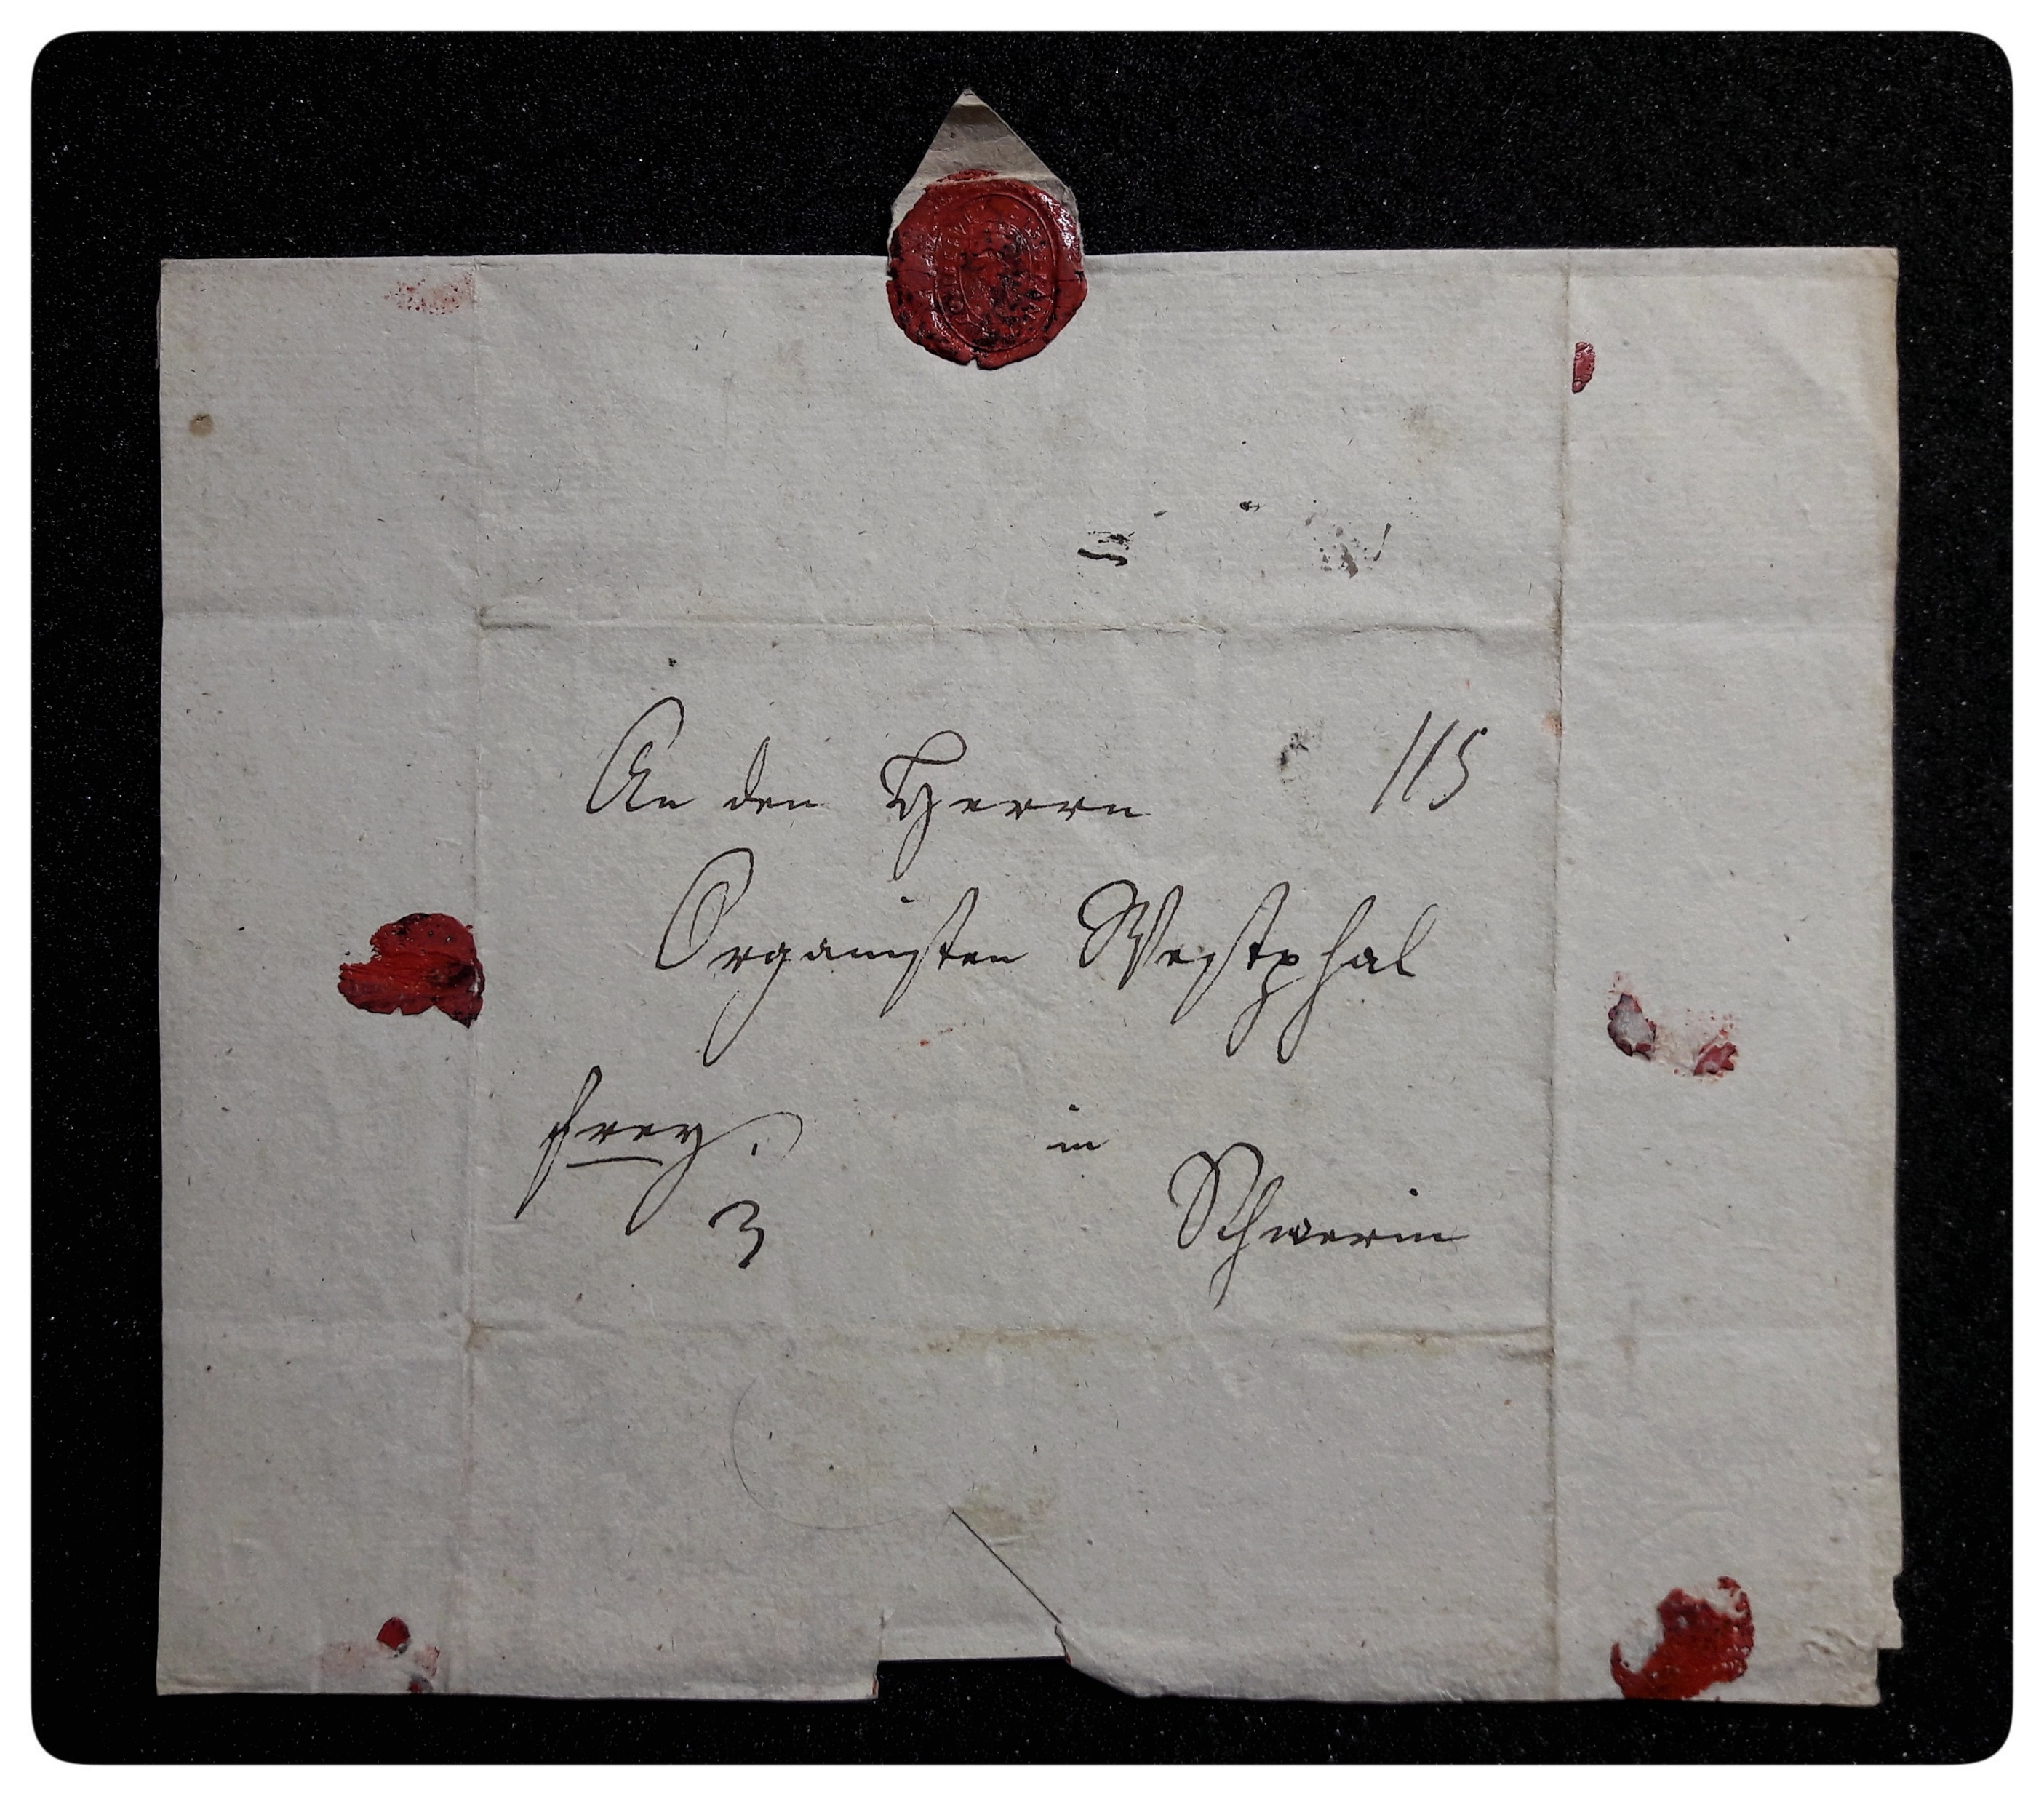 An den Herrn 115
Organisten Westphal
frey. in
3 Schwerin